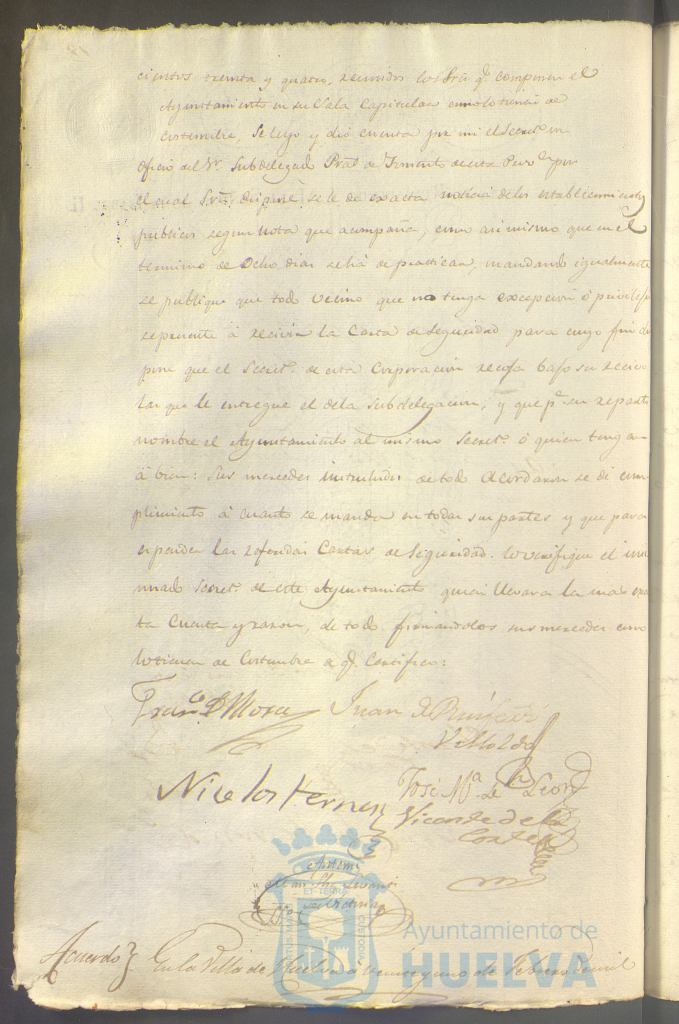 cientos treinta y quatro, reunidos los Sres. q.e componen el
Ayuntamiento en su Sala Capitular como lo tienen de
costumbre, se leyo y dió cuenta por mi el Secret.o un
Oficio del Sr. Subdelegado Pral. de Fomento de esta Prov.a por
el cual dispone se le de exacta noticia de los establecimientos
publicos segun nota que acompaña, como asi mismo que en el
termino de Ocho dias se há de practicar, mandando igualmente
se publique que todo vecino que no tenga excepcion ó privilegio
se presente á recivir la Carta de Seguridad para cuyo fin dis
pone que el Secret.o de esta Corporacion recoja bajo su recivo
las que le entregue el de la Subdelegacion, y que p.a su reparto
nombre el Ayuntamiento al mismo Secret.o ó quien tenga
á bien: Sus mercedes instruidos de todo Acordaron se dé cum
plimiento á cuanto se manda en todas sus partes y que para
expender las referidas Cartas de Seguridad lo verifique el
Secret.o de este Ayuntamiento quien llevara la mas exa
ta Cuenta y razon, de todo firmandolos sus mercedes como
lo tienen de Costumbre de q.e Certifico:
Fran.co de Mora Juan
Velloldo
Nicolas Hernen José M.a de Leon
Vicente de la
Corte
Antemi
Acuerdo En la Villa de Huelva a veinte y uno de Febrero de mil
Ayuntamiento de
HUELVA